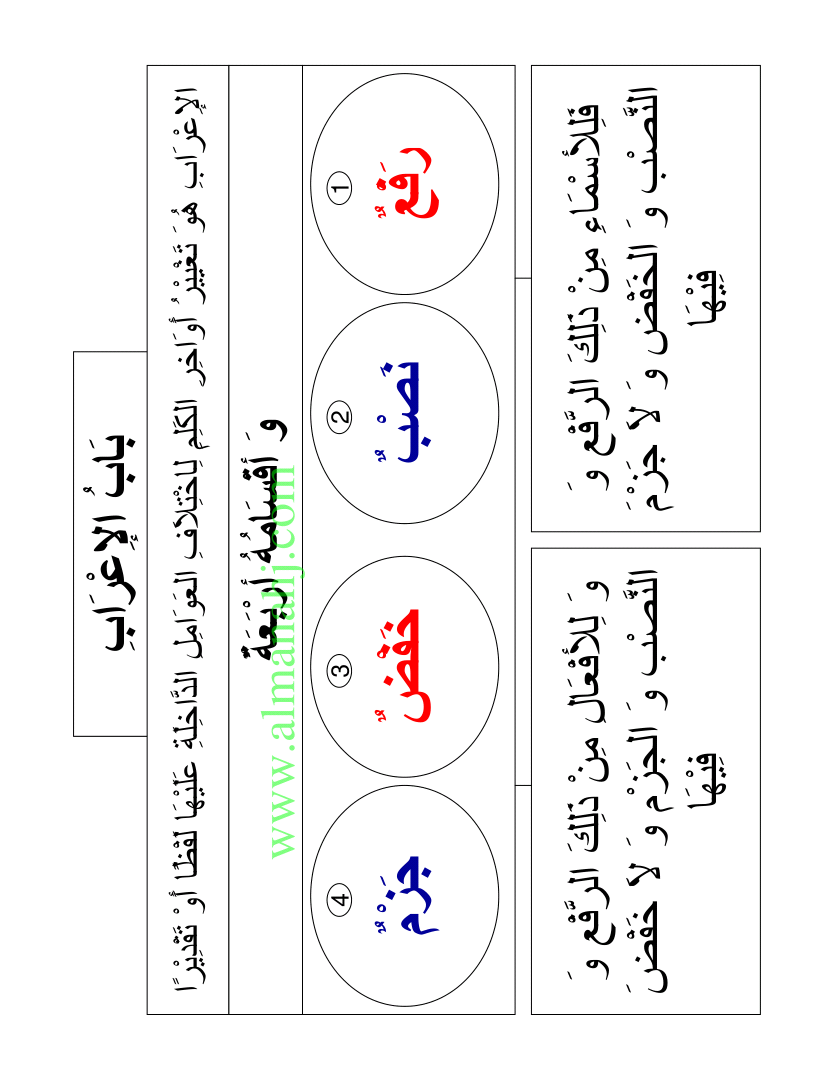 بَابُ الإِعْرَابِ
الإِعْرَابِ هُوَ تَغْيِيْرُ أَوَاخِرِ الكَلِمِ لِاخْتِلَافِ العَوَامِلِ الدَّاخِلَةِ عَلَيْهَا لَفْظًا أَوْ تَقْدِيْرًا
وَ أَقْسَامُهُ أَرْبَعَةٌ
www.almanahj.com
1
رَفْعٌ
2
نَصْبٌ
3
خَفْضٌ
4
جَزْمٌ
فَلِلأَسْمَاءِ مِنْ ذَلِكَ الرَّفْع وَ
النَّصْب وَ الخَفْض وَ لاَ جَزْمَ
فِيْهَا
وَ لِلأَفْعَالِ مِنْ ذَلِكَ الرَّفْع وَ
النَّصْب وَ الجَزْم وَ لاَ خَفْضَ
فِيْهَا